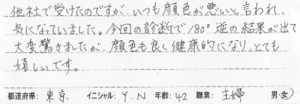 他社で受けたのですが、いつも顔色が悪いと言われ、
気になっていました。今回の診断で180°逆の結果が出て
大変驚きましたが、顔色も良く健康的になり、とても
嬉しいです。
都道府県：東京 イニシャル：Y.N 年齢：42 職業：主婦 男・女